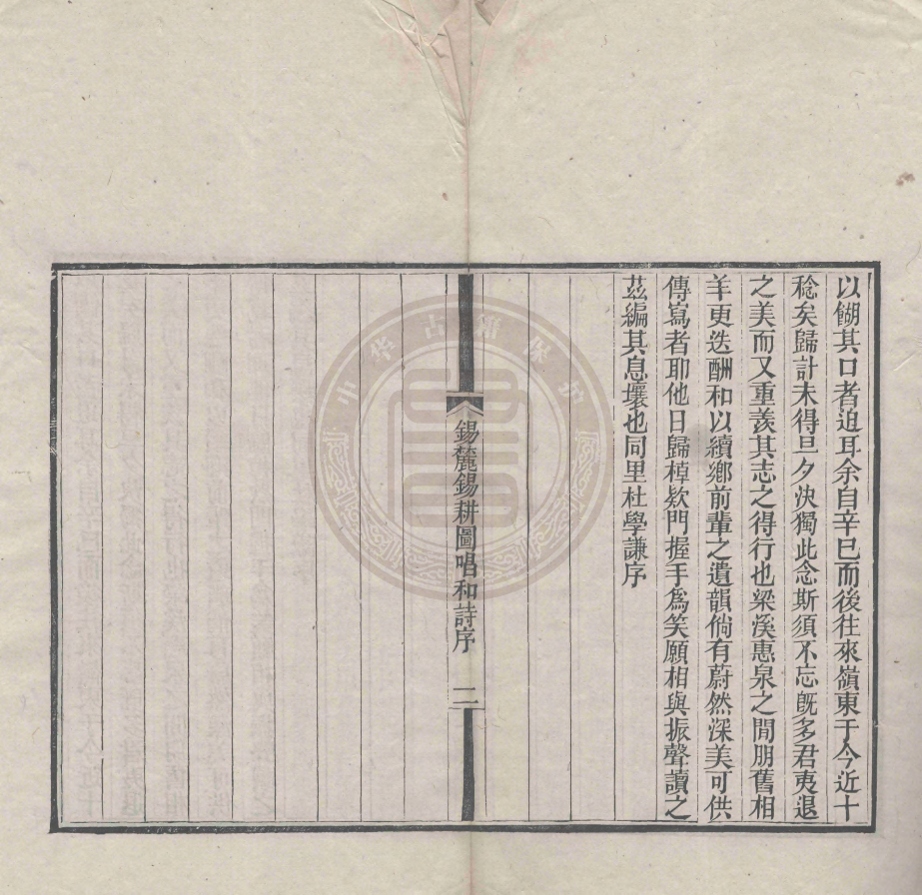 以餬其口者迫耳余自辛巳而後往來嶺東于今近十
稔矣歸計未得旦夕決獨此念斯須不忘旣多君夷退
之美而又重羨其志之得行也梁溪惠泉之間朋舊相
羊更迭酬和以續鄉前輩之遺韻倘有蔚然深美可供
傳寫者耶他日歸棹欵門握手爲笑願相與振聲讀之
茲編其息壤也同里杜學謙序
錫麓錫耕圖唱和詩序 二